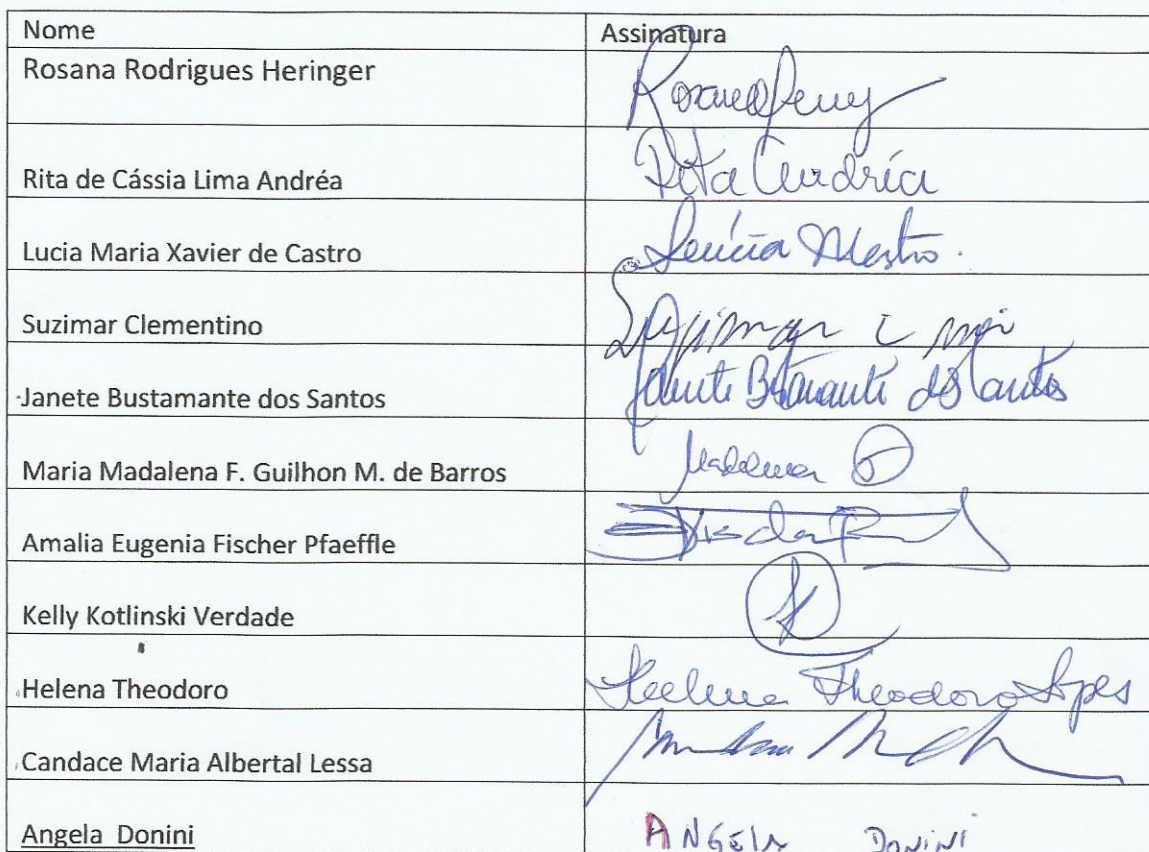 Nome Assinatura
Rosana Rodrigues Heringer
Rita de Cássia Lima Andréa Rita Andréa
Lucia Maria Xavier de Castro
Suzimar Clementino
Janete Bustamante dos Santos Janete Bustamante dos Santos
Maria Madalena F. Guilhon M. de Barros Madalena
Amalia Eugenia Fischer Pfaeffle
Kelly Kotlinski Verdade K
Helena Theodoro Helena Theodoro Lopes
Candace Maria Albertal Lessa
Angela Donini ANGELA DONINI